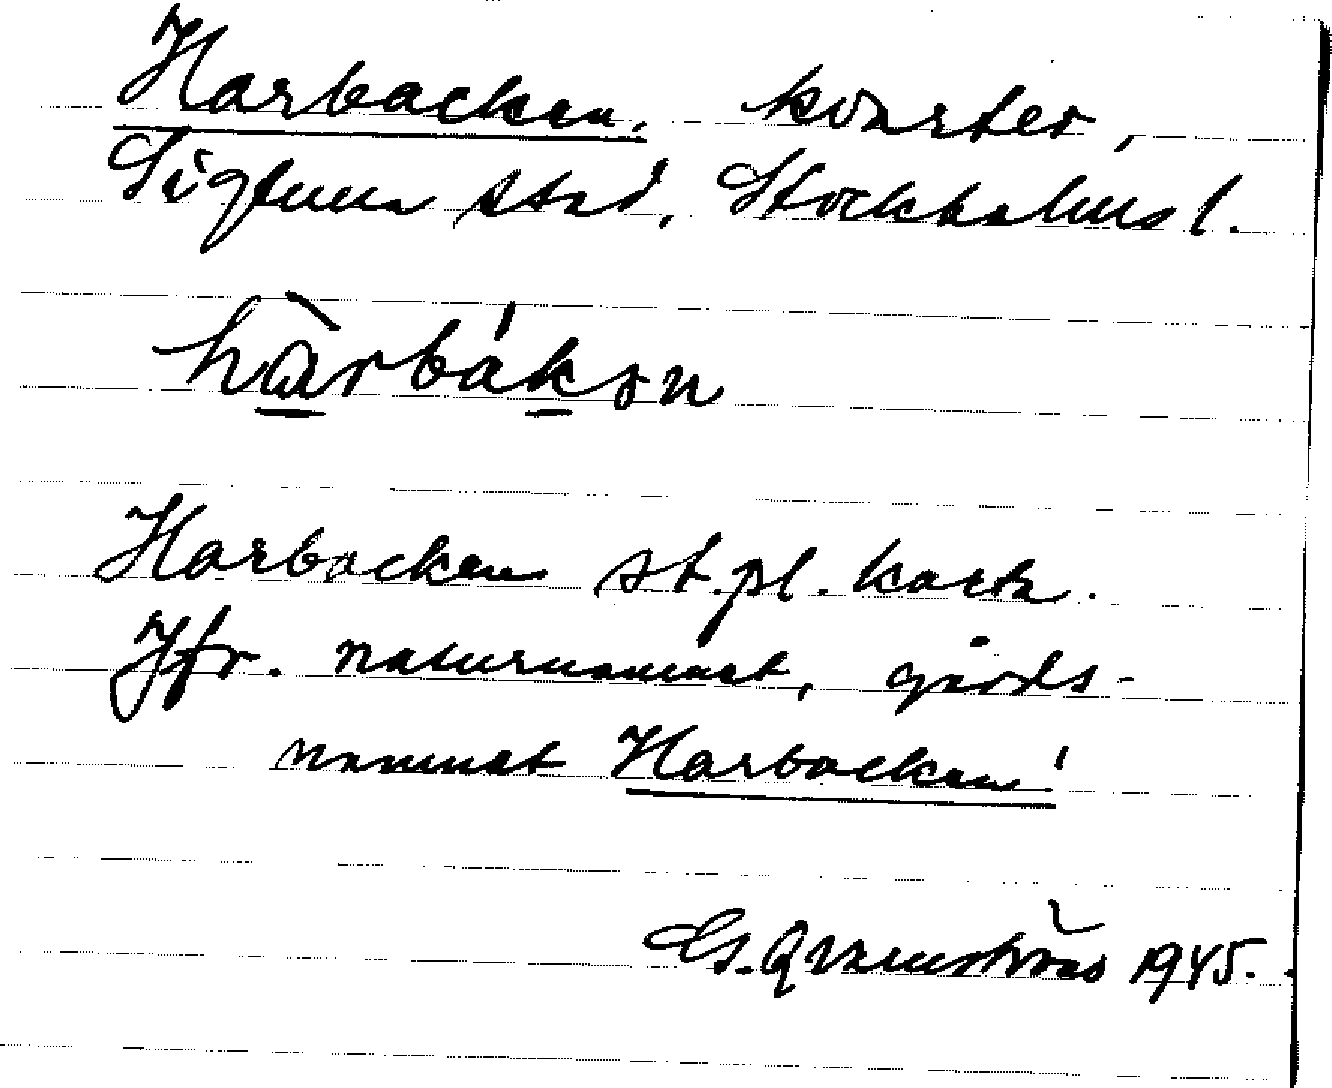 Harbacken, kvarter,
Sigtuna stad, Stockholms l.
hàrbákən
Harbacken st.pl. kart.
Jfr. naturnamnet, gårds-
namnet Harbacken!
G. Qvarnström 1945.